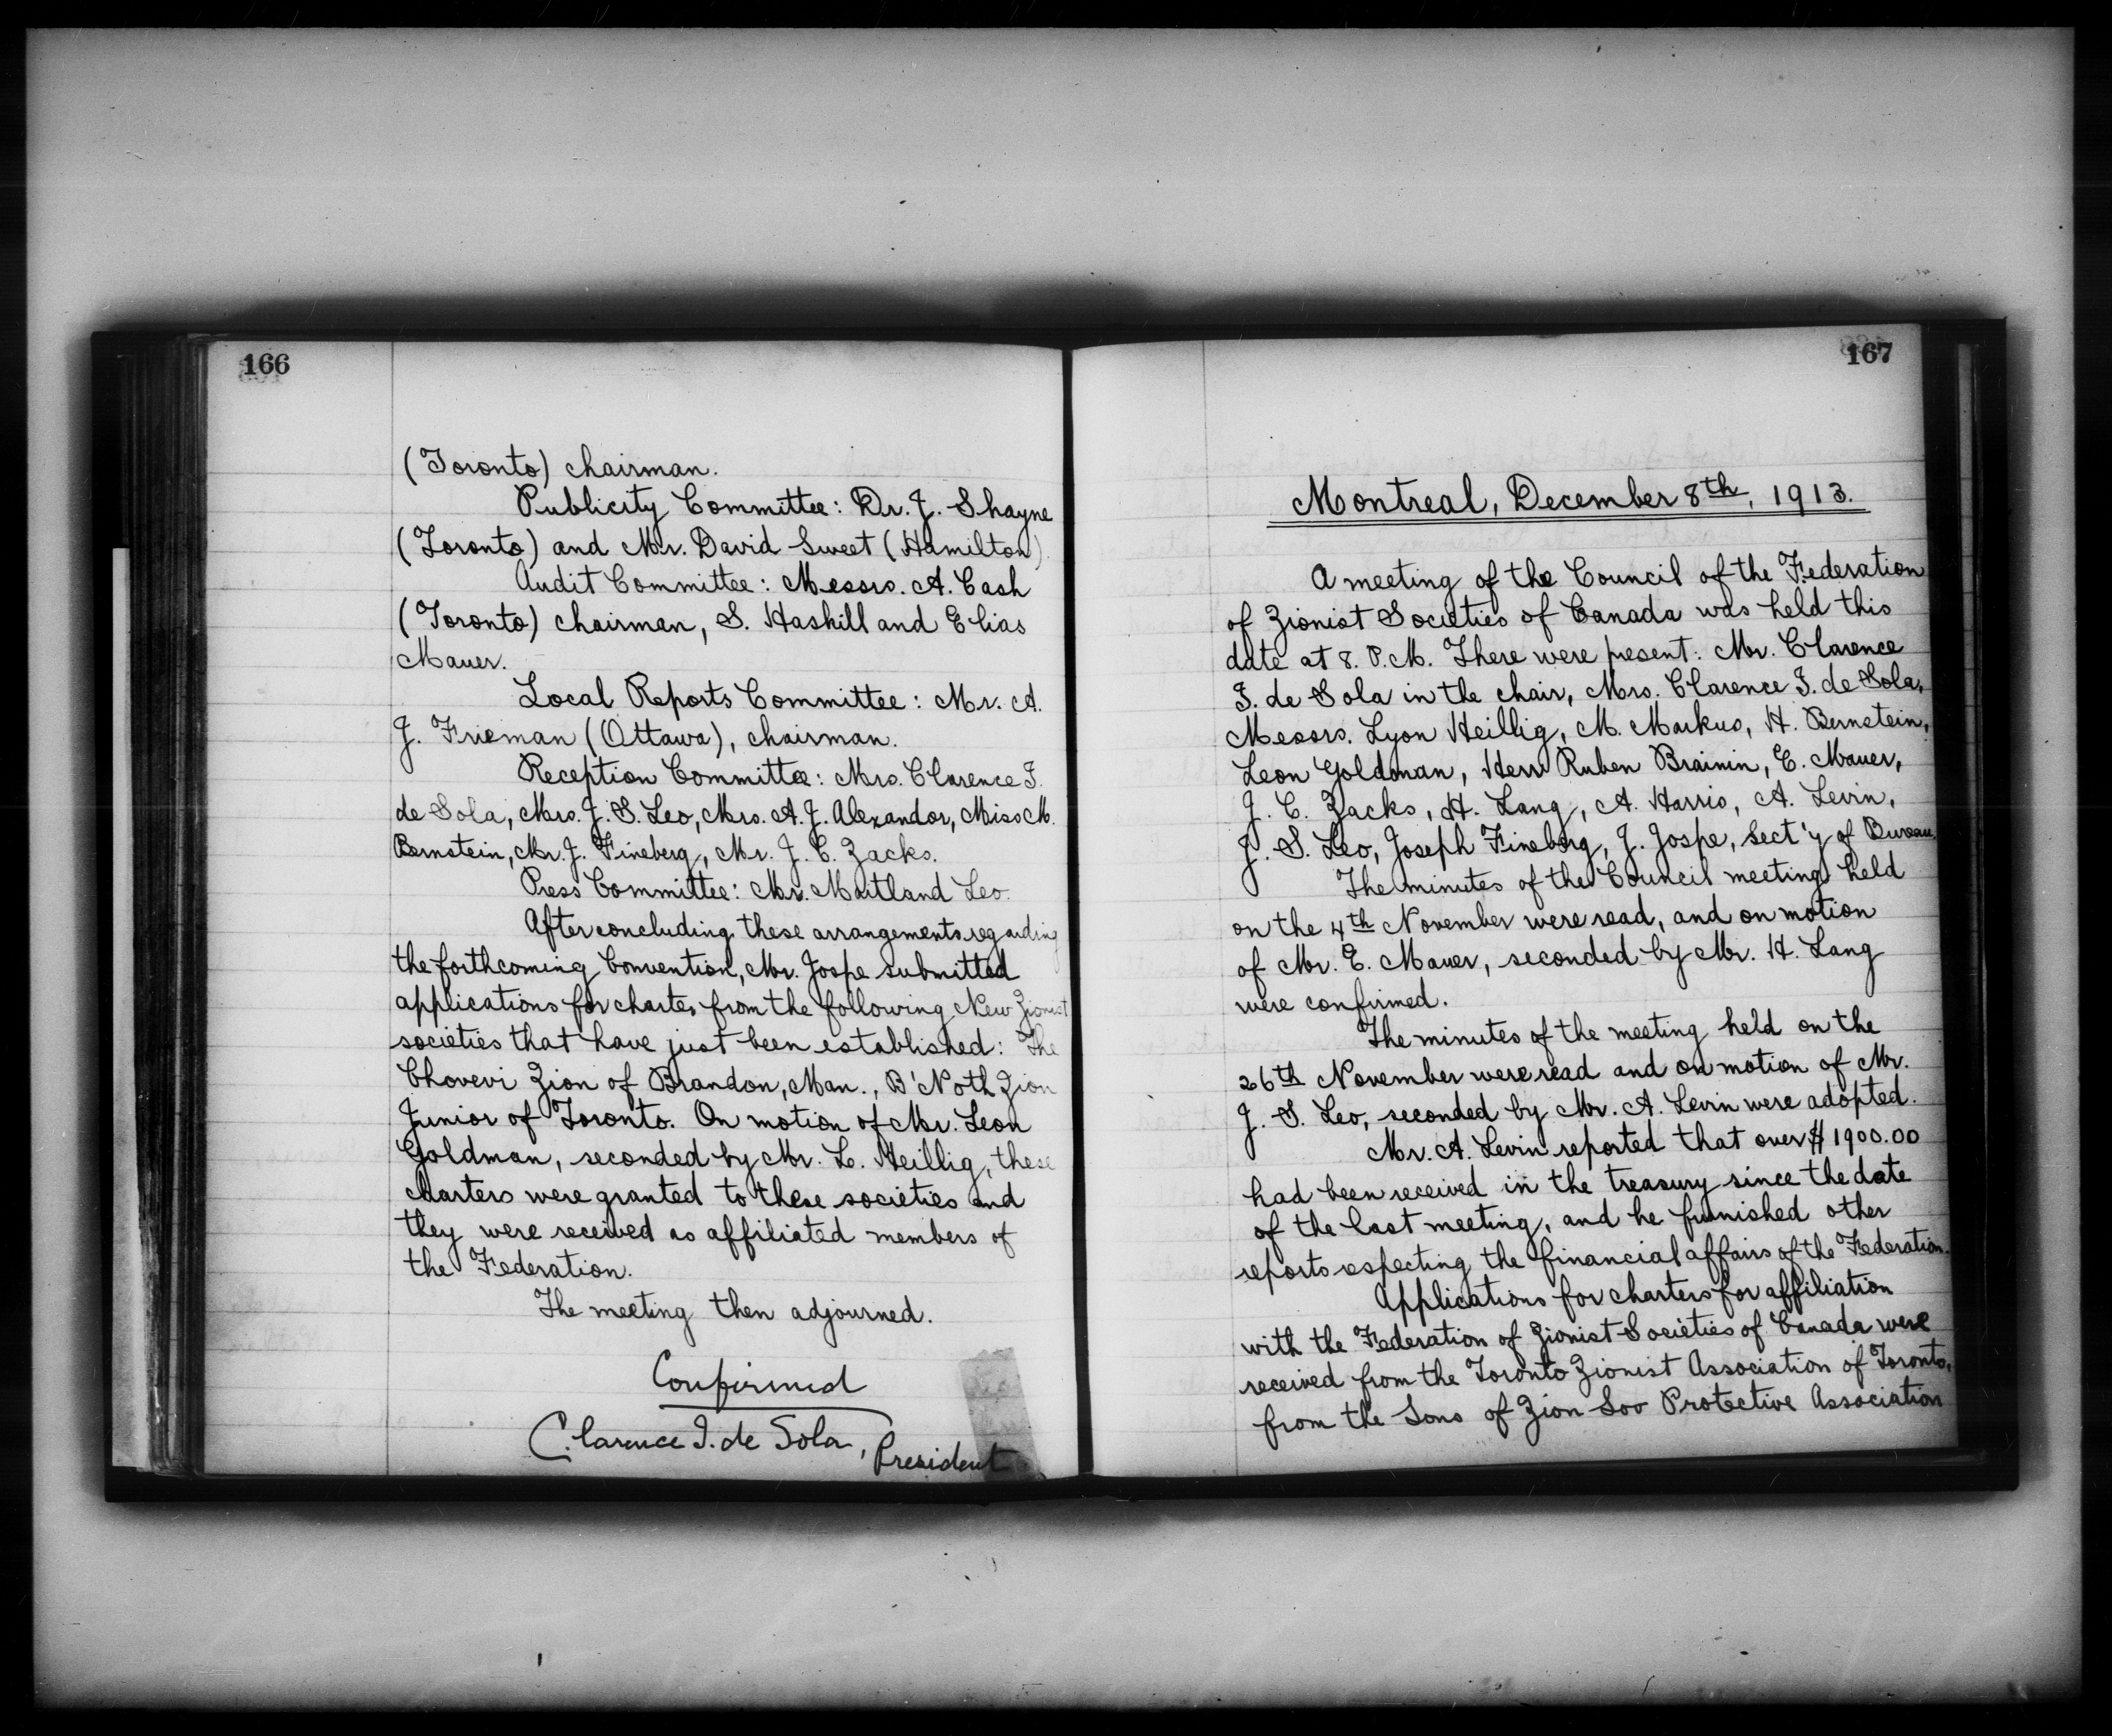 166
(Toronto) chairman.
Publicity Committee: Dr. J. Shayne
(Toronto) and Mr. David Sweet (Hamilton)
Audit Committee: Messrs. A. Cash
(Toronto) chairman, S. Haskill and Elias
Mauer.
Local Reports Committee: Mr. A.
J. Frieman (Ottawa), chairman.
Reception Committee: Mrs. Clarence I.
de Sola, Mrs. J. S. Leo, Mrs. A. J. Alexandor, Miss M.
Bernstein, Mr. J. Fineberg, Mr. J. C. Zacks.
Press Committee: Mr. Maitland Leo.
After concluding these arrangements regarding
the forthcoming Convention, Mr. Jospe submitted
applications for charter from the following New Zionist
societies that have just been established: The
Chovevi Zion of Brandon, Man., B'Noth Zion
Junior of Toronto. On motion of Mr. Leon
Goldman, seconded by Mr. L. Heillig, these
charters were granted to these societies and
they were received as affiliated members of
the Federation.
The meeting then adjourned.
Confirmed
Clarence I. de Sola, President
167
Montreal, December 8th, 1913.
A meeting of the Council of the Federation
of Zionist Societies of Canada was held this
date at 8. P.M. There were present: Mr. Clarence
I. de Sola in the chair, Mrs. Clarence I. de Sola,
Messrs. Lyon Heillig, M. Markus, H. Bernstein,
Leon Goldman, Herr Ruben Brainin, E. Mauer,
J. C. Zacks, H. Lang, A. Harris, A. Levin,
J. S. Leo, Joseph Fineberg, J. Jospe, Sect'y of Bureau.
The minutes of the Council meeting held
on the 4th November were read, and on motion
of Mr. E. Mauer, seconded by Mr. H. Lang
were confirmed.
The minutes of the meeting held on the
26th November were read and on motion of Mr.
J. S. Leo, seconded by Mr. A. Levin were adopted.
Mr. A. Levin reported that over $1900.00
had been received in the treasury since the date
of the last meeting, and he furnished other
reports respecting the financial affairs of the Federation.
Applications for charters for affiliation
with the Federation of Zionist Societies of Canada were
received from the Toronto Zionist Association of Toronto,
from the Sons of Zion Soo Protective Association